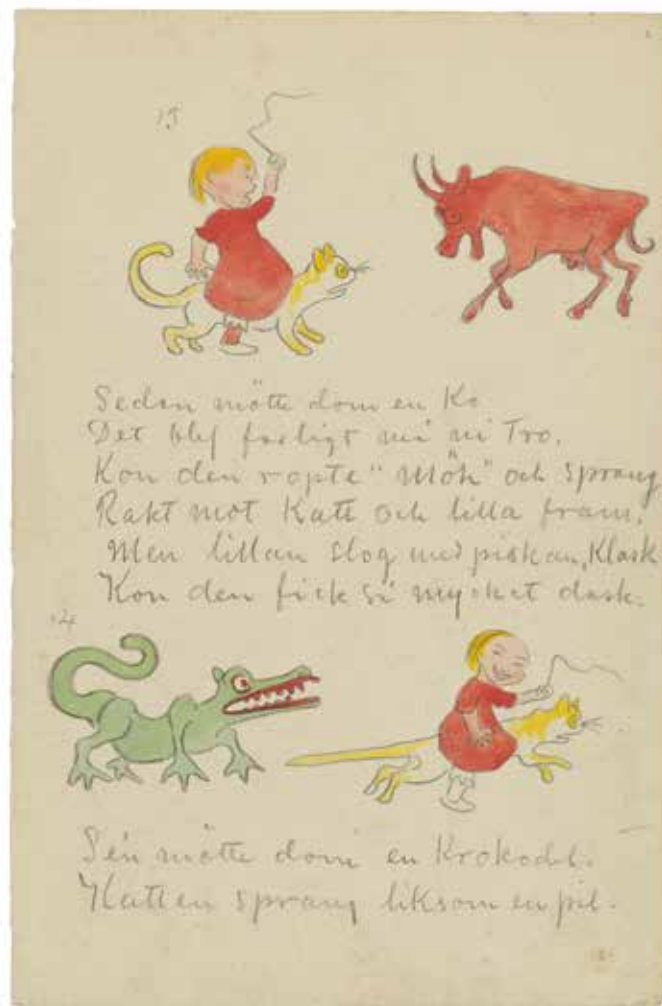 13
Sedan mötte dom en Ko
Det blef farligt må ni Tro.
Kon den ropte "Möh" och sprang
Rakt mot Katt och lilla fram.
Men lillan slog med piskan, Klask
Kon den fick så mycket dask.
14
Sen mötte dom en Krokodil.
Katten sprang liksom en pil.